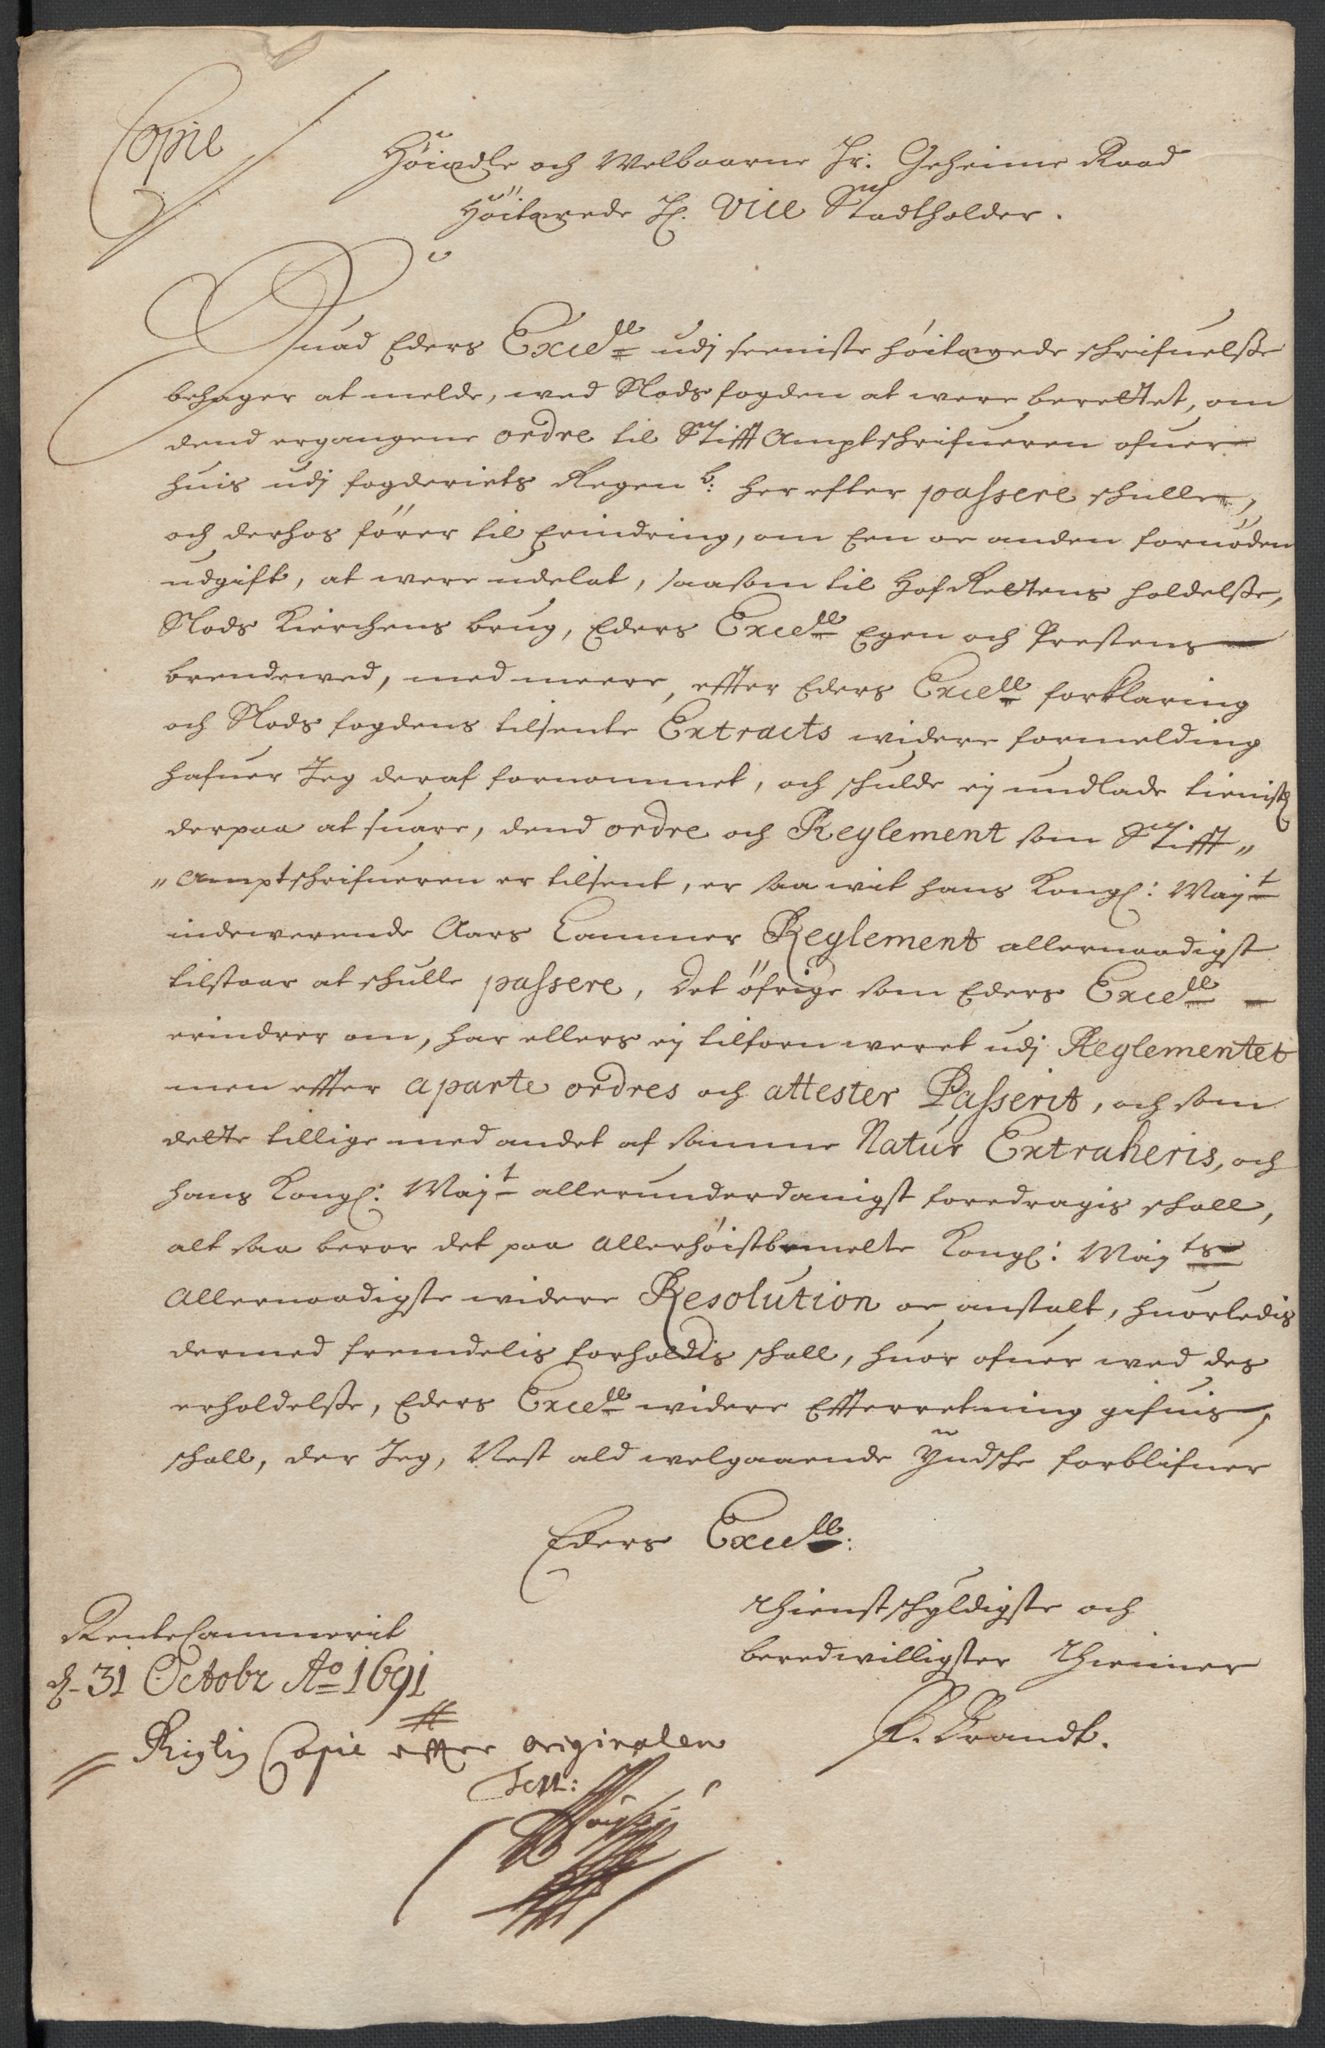 Copie
Høiædle och Welbaarne Hr. Geheime Raad
Høitærede Hr. Vice Stadtholder.
Huad Eders Excell: udj seeniste høitærede schrifuelsse
behager at melde, wed Slodsfogden at were berettet, om
dend ergangene ordre til StifftAmptschrifueren ofuer
huis udj fogderiets Regensb: her efter passere schulle,
och derhos fører til Erindring, om Een oc anden fornøden
udgift, at were udelat, saasom til HofRettens holdelsse,
Slods Kierchens brug, Eders Excell: Egen och Prestens
brendewed, med meere, effter Eders Excell: forklaring
och Slods fogdens tilsente Extracts widere formelding
hafuer Jeg deraf fornommet, och schulde ej undlade tienistl:
derpaa at suare, dend ordre och Reglement som Stifft„
„Amptschrifueren er tilsent, er saa wit hans Kongl: Maj:t
indewerende Aars Cammer Reglement allernaadigst
tilstaar at schulle passere, Det øfrige som Eders Excell:
erindrer om, har ellers ej tilforn weret udj Reglementet
men effter aparte ordres och attester Passerit, och som
dette tillige med andet af samme Natur Extraheris, och
hans Kongl: Maj:t allerunderdanigst foredragis schall,
alt saa beror det paa Allerhøistbemelte Kongl: Maj:ts
Allernaadigste widere Resolution oc anstalt, huorledis
dermed fremdelis forholdis schall, huor ofuer wed des
erholdelsse, Eders Excell: widere Effterretning gifuis
schall, der Jeg, Nest ald welgaaende Yndsche forblifuer
Eders Excell:
Thienstschyldigste och
beredwilligster Thienner
P. Brandt.
RenteCammerit
d. 31 Octobr Ao 1691
Rigtig Copie efter originalen
Test: